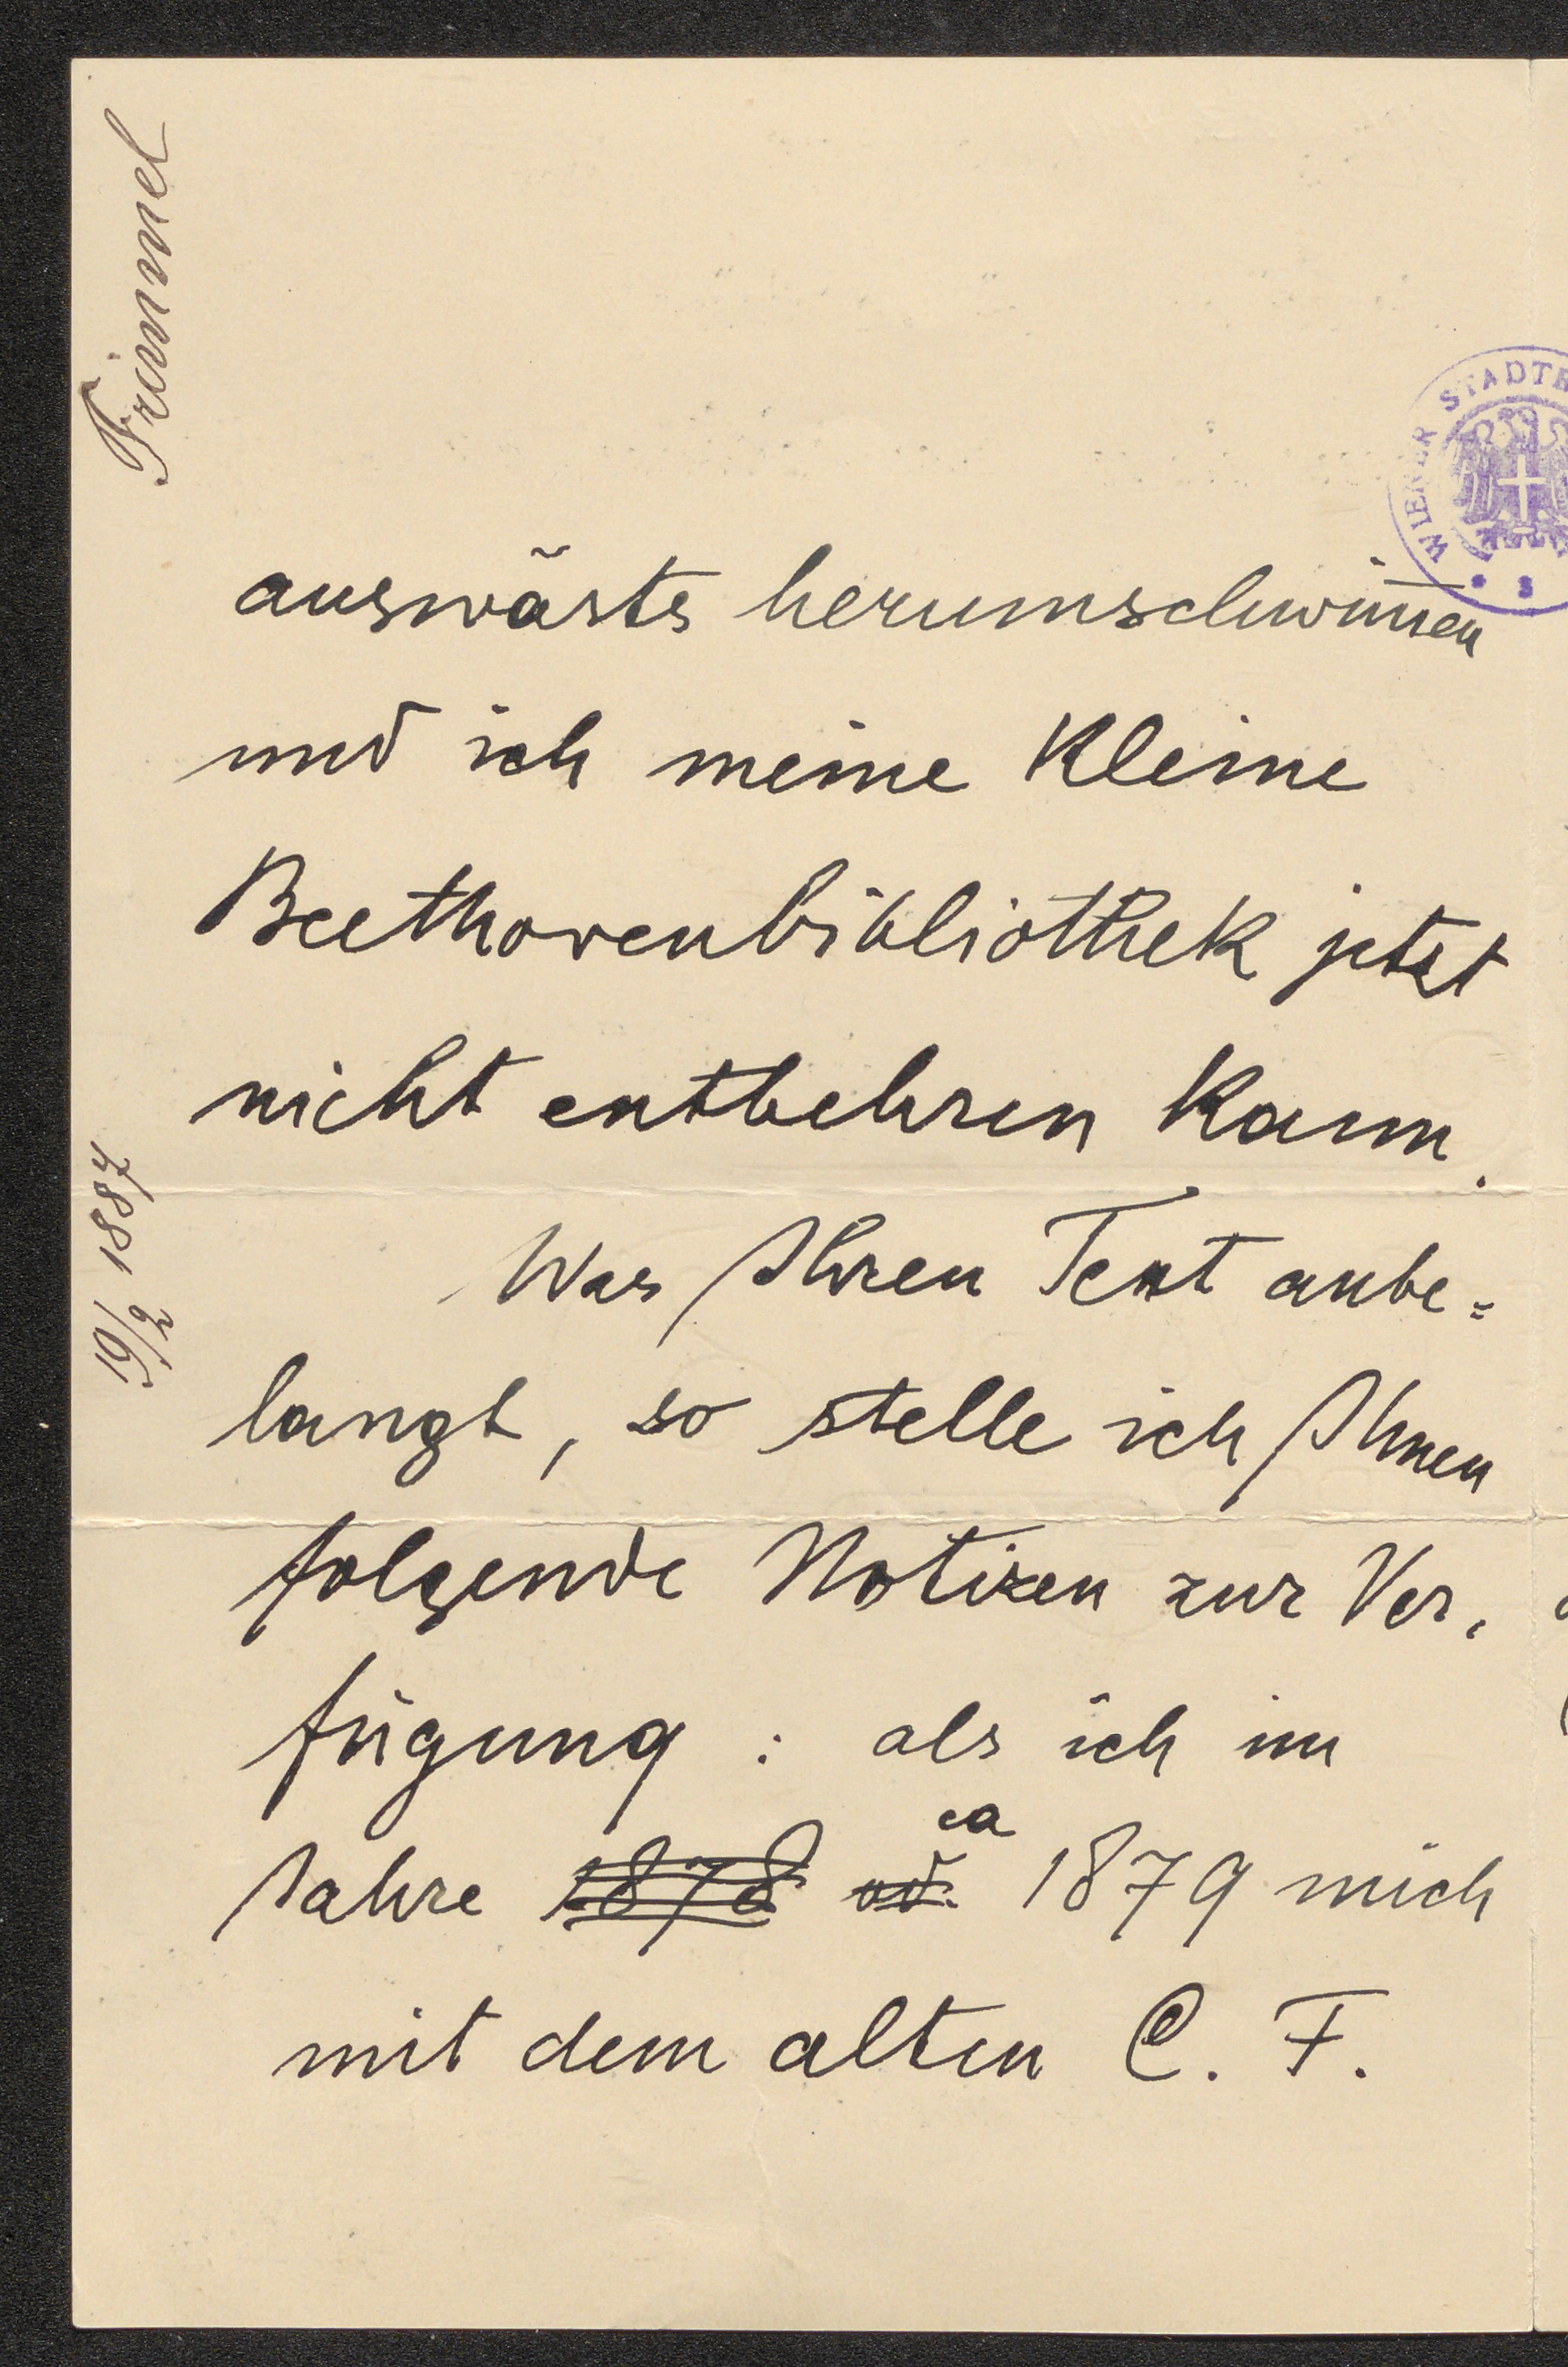 Frimmel
19/2 1887
WIENER STADTB
auswärts herumschwim̅en
und ich meine Kleine
Beethovenbibliothek jetzt
nicht entbehren Kann.
Was Ihren Text anbe=
langt, so stelle ich Ihnen
folgende Notizen zur Ver,
fügung : als ich im
ca
Jahre 1878 od. 1879 mich
mit dem alten C. F.